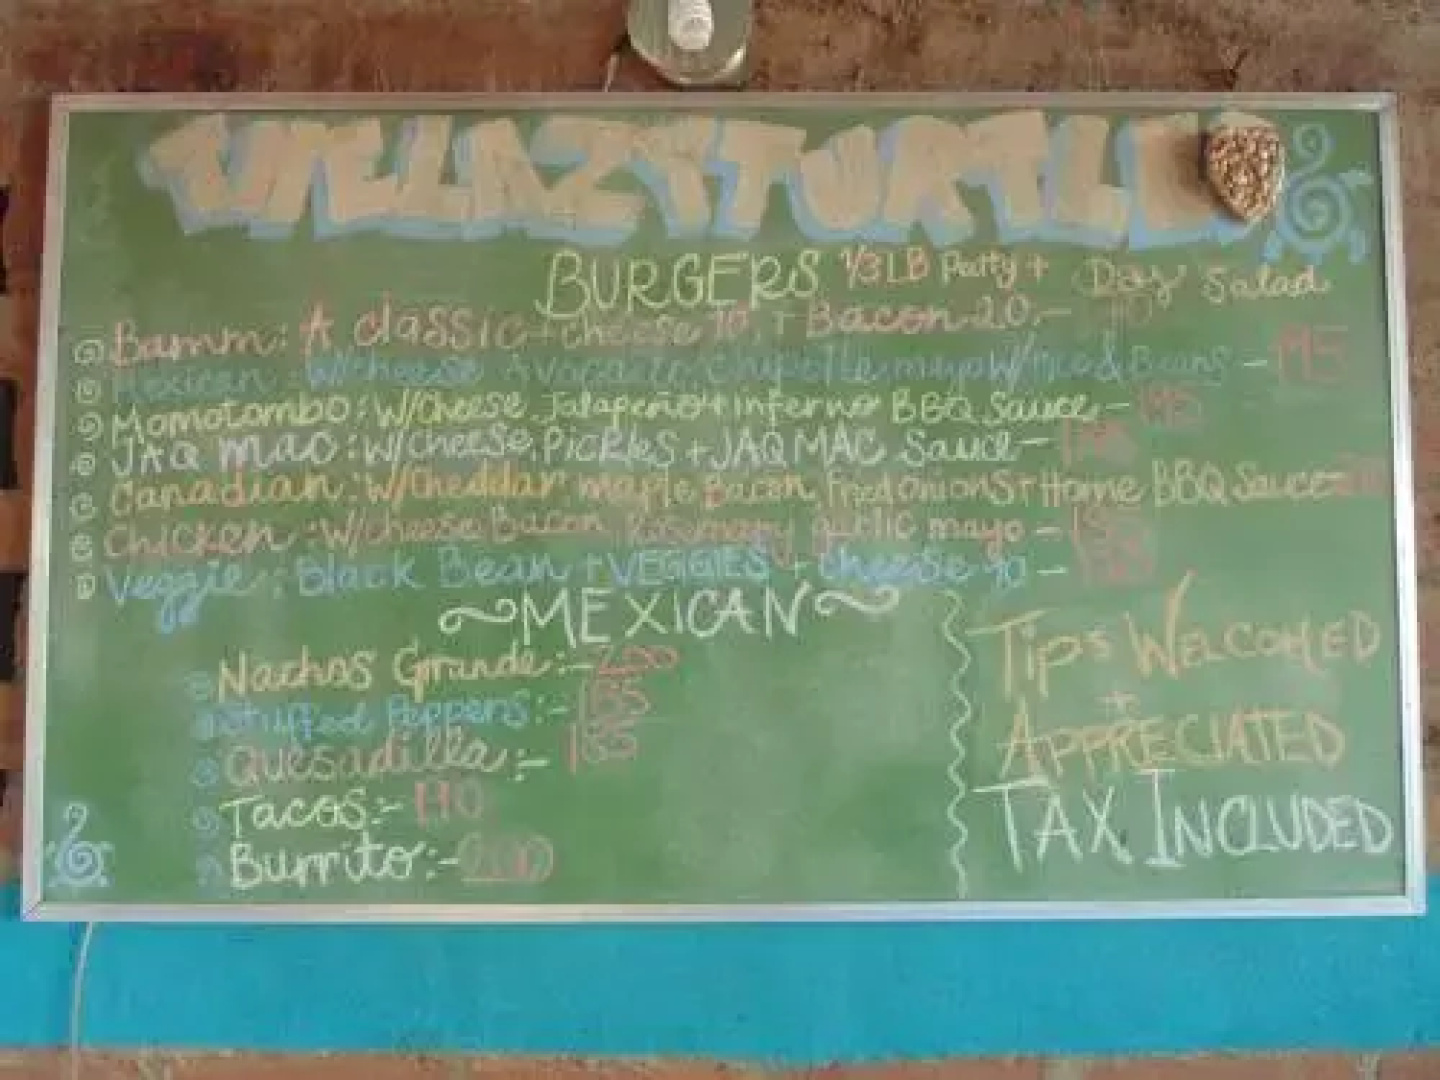 BURGERS 1/3 LB Patty + Day Salad
Bamm: A classic + cheese 10. + Bacon 20.-
Mexican: W/cheese Avocado, Chipotle mayo W/Pico & Beans - 195
Momotombo: W/Cheese, Jalapeño + inferno BBQ Sauce -
JAQ MAC: W/Cheese, Pickles + JAQ MAC Sauce -
Canadian: W/Cheddar maple Bacon, Fried onions + Home BBQ Sauce
Chicken: W/cheese Bacon, Rosemary garlic mayo -
Veggie: Black Bean + VEGGIES + cheese 10 -
MEXICAN
Nachos Grande:- 200
Stuffed Peppers:- 185
Quesadilla:- 185
Tacos:-
Burrito:- 200
Tips WELCOMED
+
APPRECIATED
TAX INCLUDED